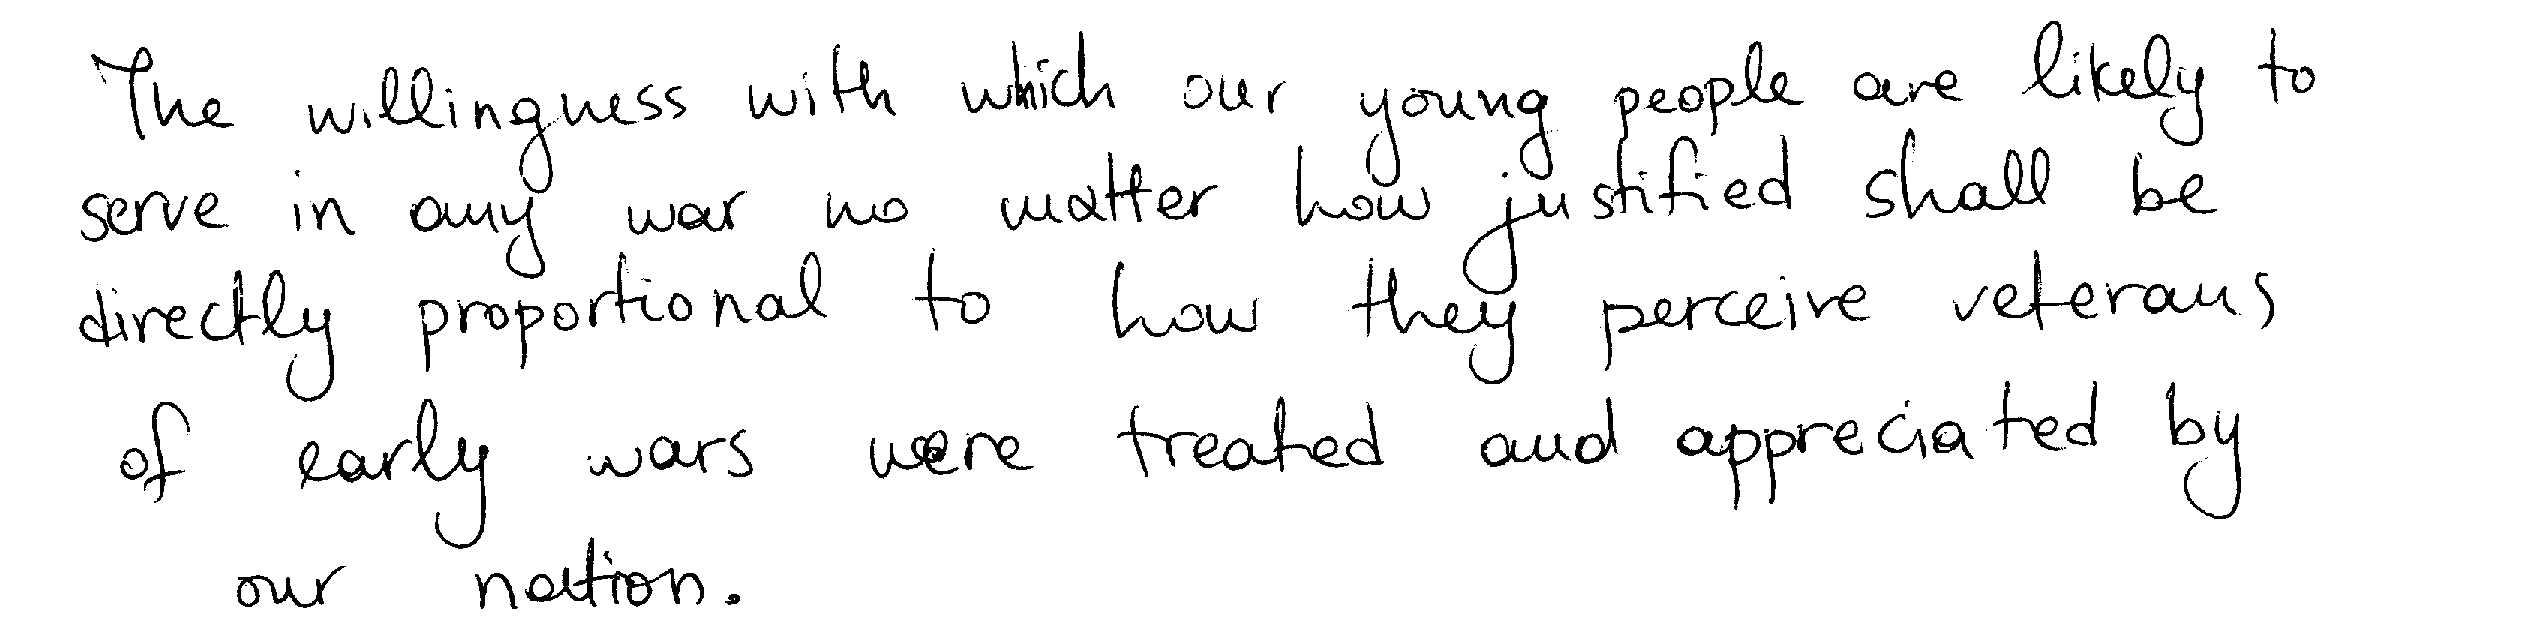 The willingness with which our young people are likely to
serve in any war no matter how justified shall be
directly proportional to how they perceive veterans
of early wars were treated and appreciated by
our nation.